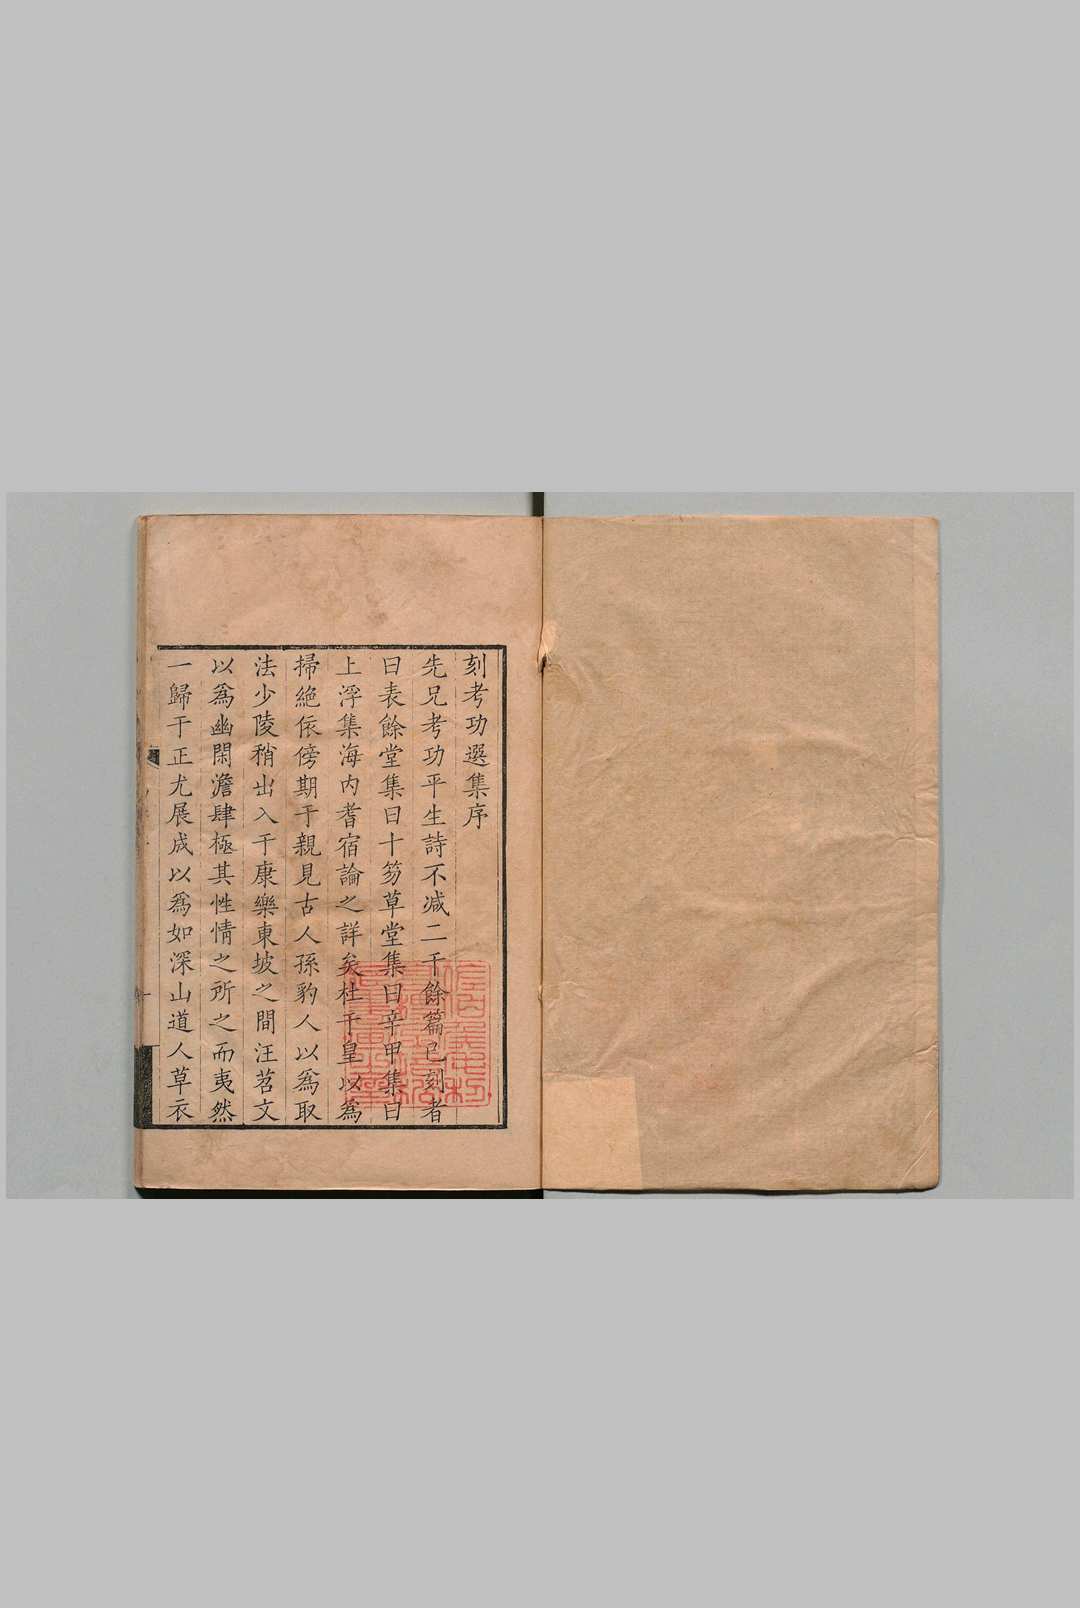 刻考功選集序
先兄考功平生詩不减二千餘篇已刻者
曰表餘堂集曰十笏草堂集曰辛甲集曰
上浮集海内耆宿論之詳矣杜于皇以為
掃絶依傍期于親見古人孫豹人以為取
法少陵稍出入于康樂東坡之間汪苕文
以為幽閑澹肆極其性情之所之而夷然
一歸于正尤展成以為如深山道人草衣